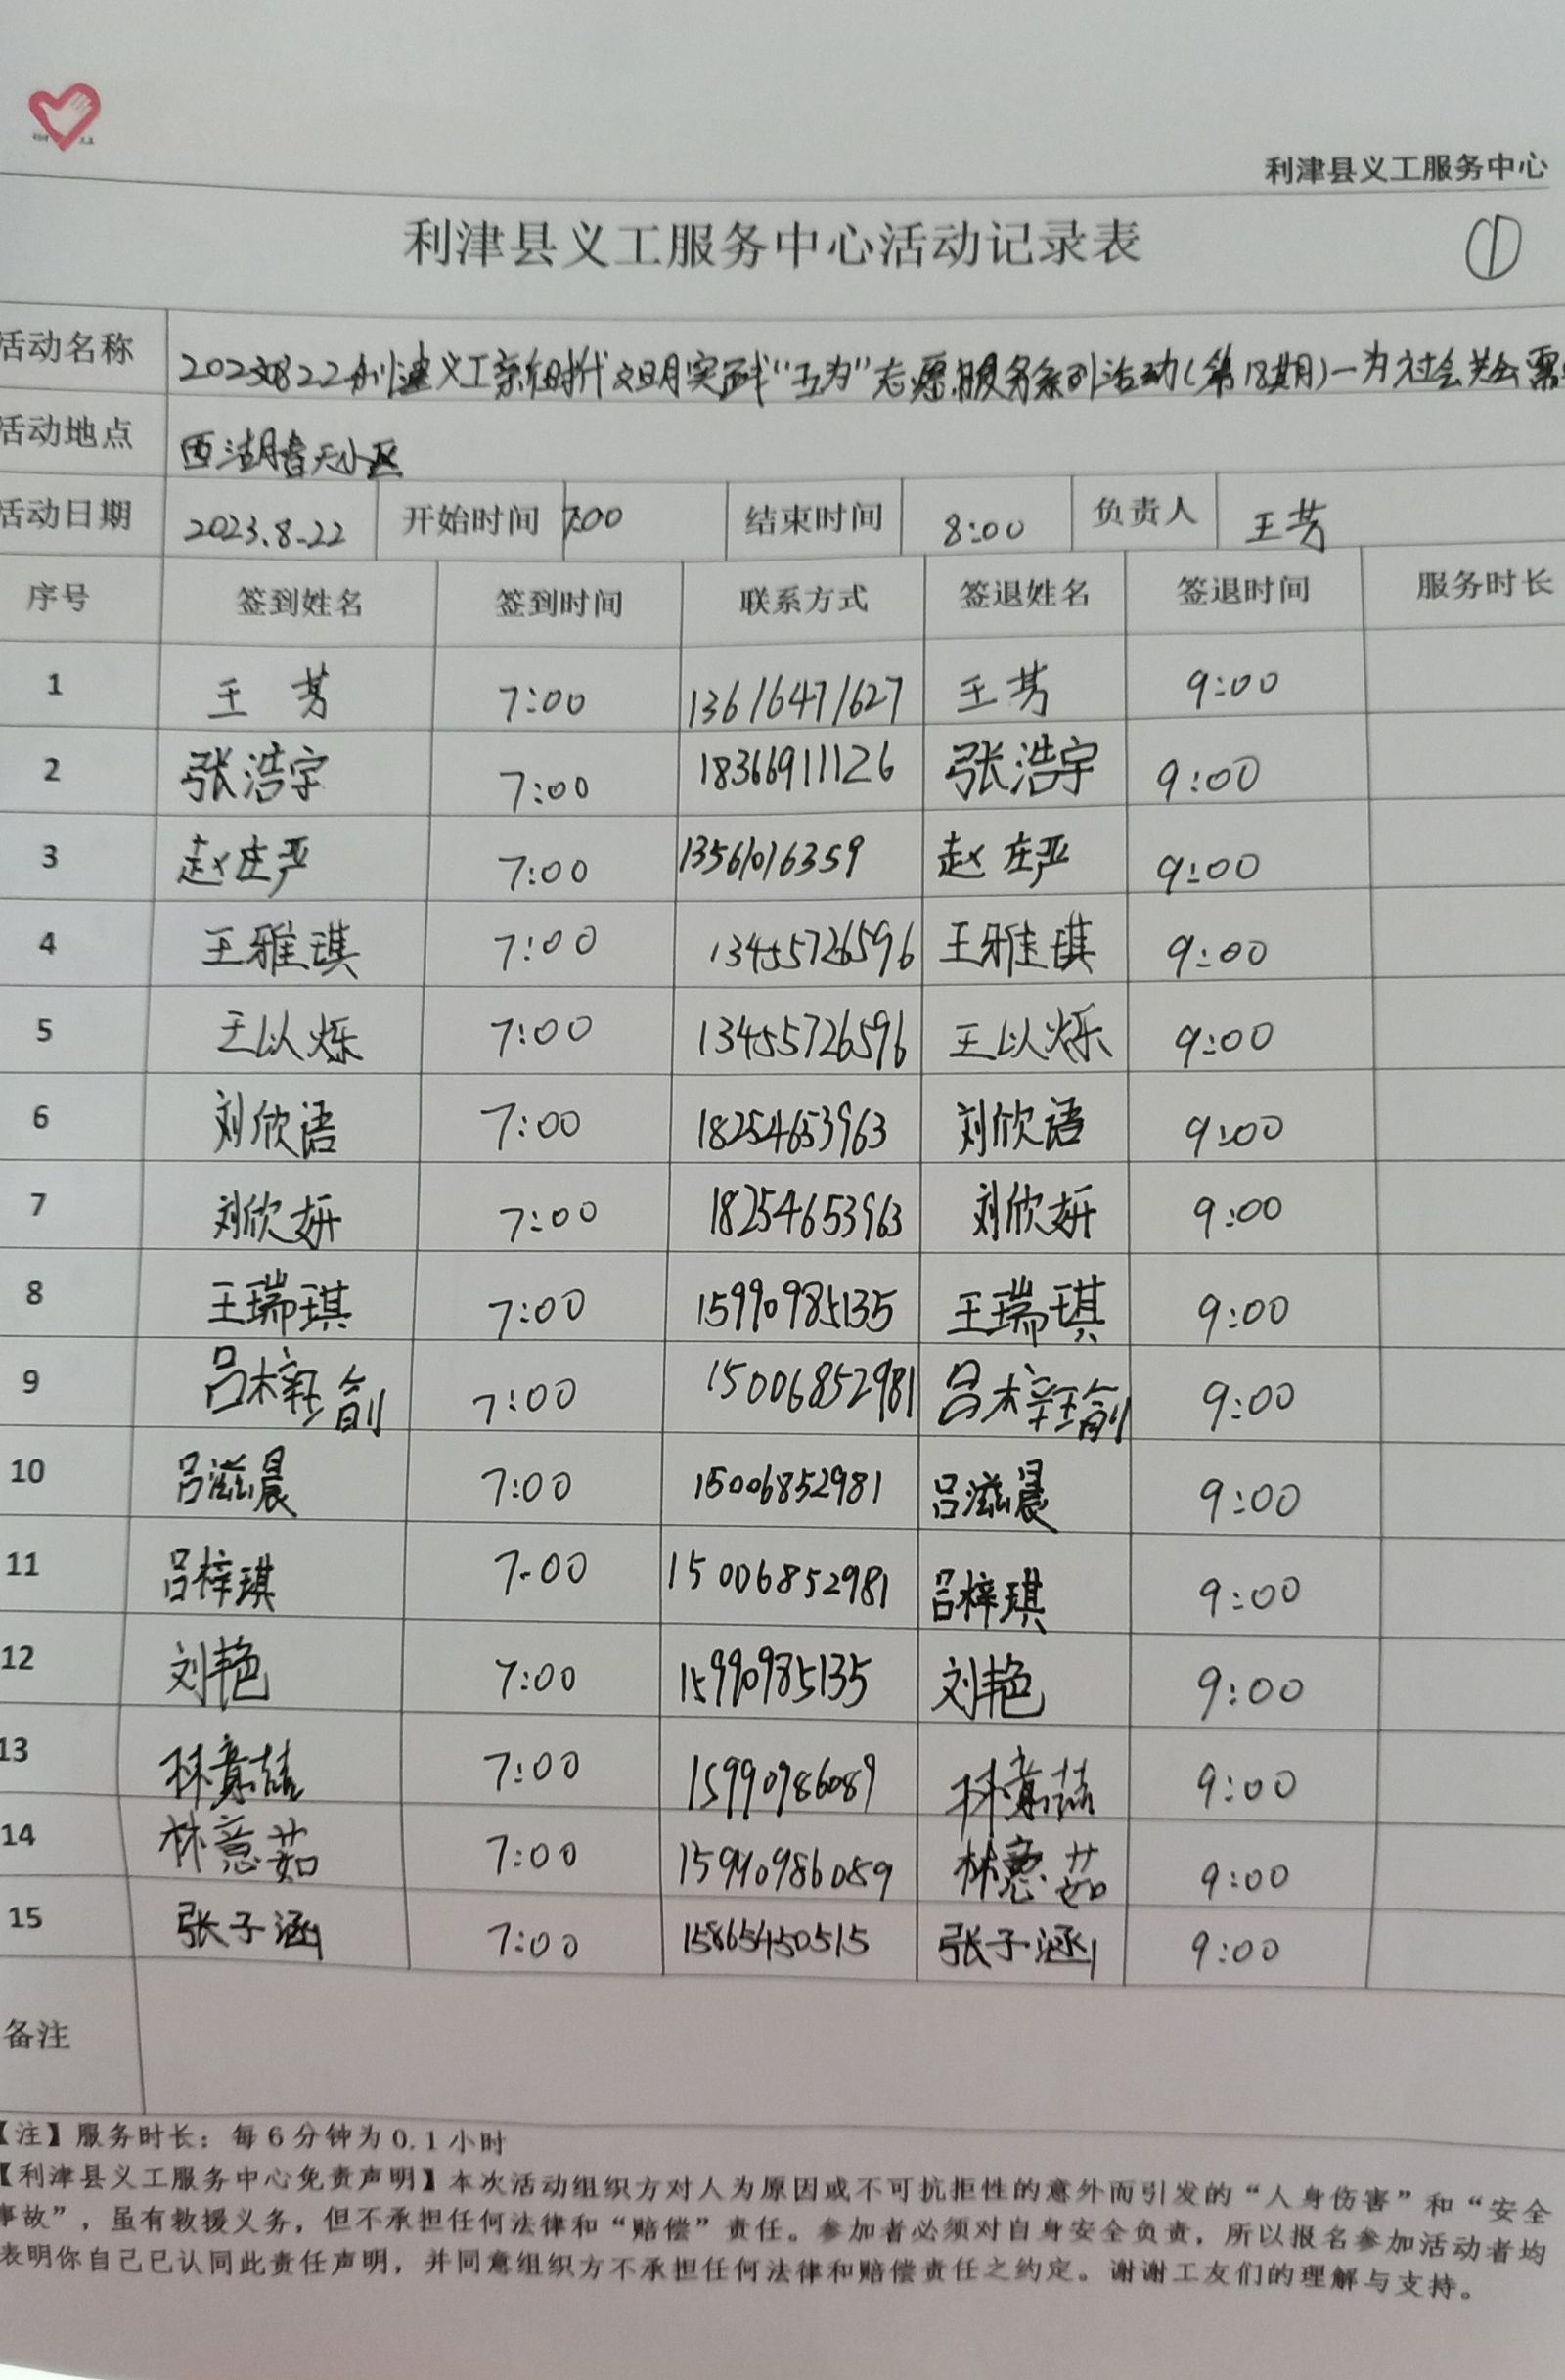 利津县义工服务中心
利津县义工服务中心活动记录表 ①
活动名称 20230822利津义工新时代文明实践“五为”志愿服务系列活动(第18期)—为社会公益需
活动地点 西湖春天小区
活动日期 2023.8.22 开始时间 7:00 结束时间 8:00 负责人 王芳
序号 签到姓名 签到时间 联系方式 签退姓名 签退时间 服务时长
1 王芳 7:00 13616471627 王芳 9:00
2 张浩宇 7:00 18366911126 张浩宇 9:00
3 赵庄严 7:00 13561016359 赵庄严 9:00
4 王雅琪 7:00 13455726596 王雅琪 9:00
5 王以烁 7:00 13455726596 王以烁 9:00
6 刘欣语 7:00 18254653963 刘欣语 9:00
7 刘欣妍 7:00 18254653963 刘欣妍 9:00
8 王瑞琪 7:00 15990985135 王瑞琪 9:00
9 吕梓瑜 7:00 15006852981 吕梓瑜 9:00
10 吕滋晨 7:00 15006852981 吕滋晨 9:00
11 吕梓琪 7:00 15006852981 吕梓琪 9:00
12 刘艳 7:00 15990985135 刘艳 9:00
13 林意喆 7:00 15990986089 林意喆 9:00
14 林意茹 7:00 15990986089 林意茹 9:00
15 张子涵 7:00 15865450515 张子涵 9:00
备注
【注】服务时长：每6分钟为0.1小时
【利津县义工服务中心免责声明】本次活动组织方对人为原因或不可抗拒性的意外而引发的“人身伤害”和“安全
事故”，虽有救援义务，但不承担任何法律和“赔偿”责任。参加者必须对自身安全负责，所以报名参加活动者均
表明你自己已认同此责任声明，并同意组织方不承担任何法律和赔偿责任之约定。谢谢工友们的理解与支持。